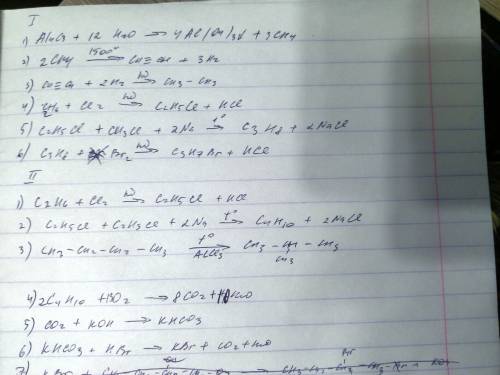 I
1) Al4C3 + 12 H2O → 4 Al(OH)3↓ + 3CH4
2) 2CH4 1500° → CH≡CH + 3H2
3) CH≡CH + 2H2 → CH3 – CH3
4) C2H6 + Cl2 hν → C2H5Cl + HCl
5) C2H5Cl + CH3Cl + 2Na t° → C3H8 + 2NaCl
6) C3H8 + Br2 hν → C3H7Br + HCl
II
1) C2H6 + Cl2 hν → C2H5Cl + HCl
2) C2H5Cl + C2H5Cl + 2Na t° → C4H10 + 2NaCl
3) CH3 – CH2 – CH2 – CH3 t° AlCl3 → CH3 – CH – CH3
CH3
4) 2C4H10 + 13O2 → 8CO2 + 10H2O
5) CO2 + KOH → KHCO3
6) KHCO3 + HBr → KBr + CO2 + H2O
7) KBr +